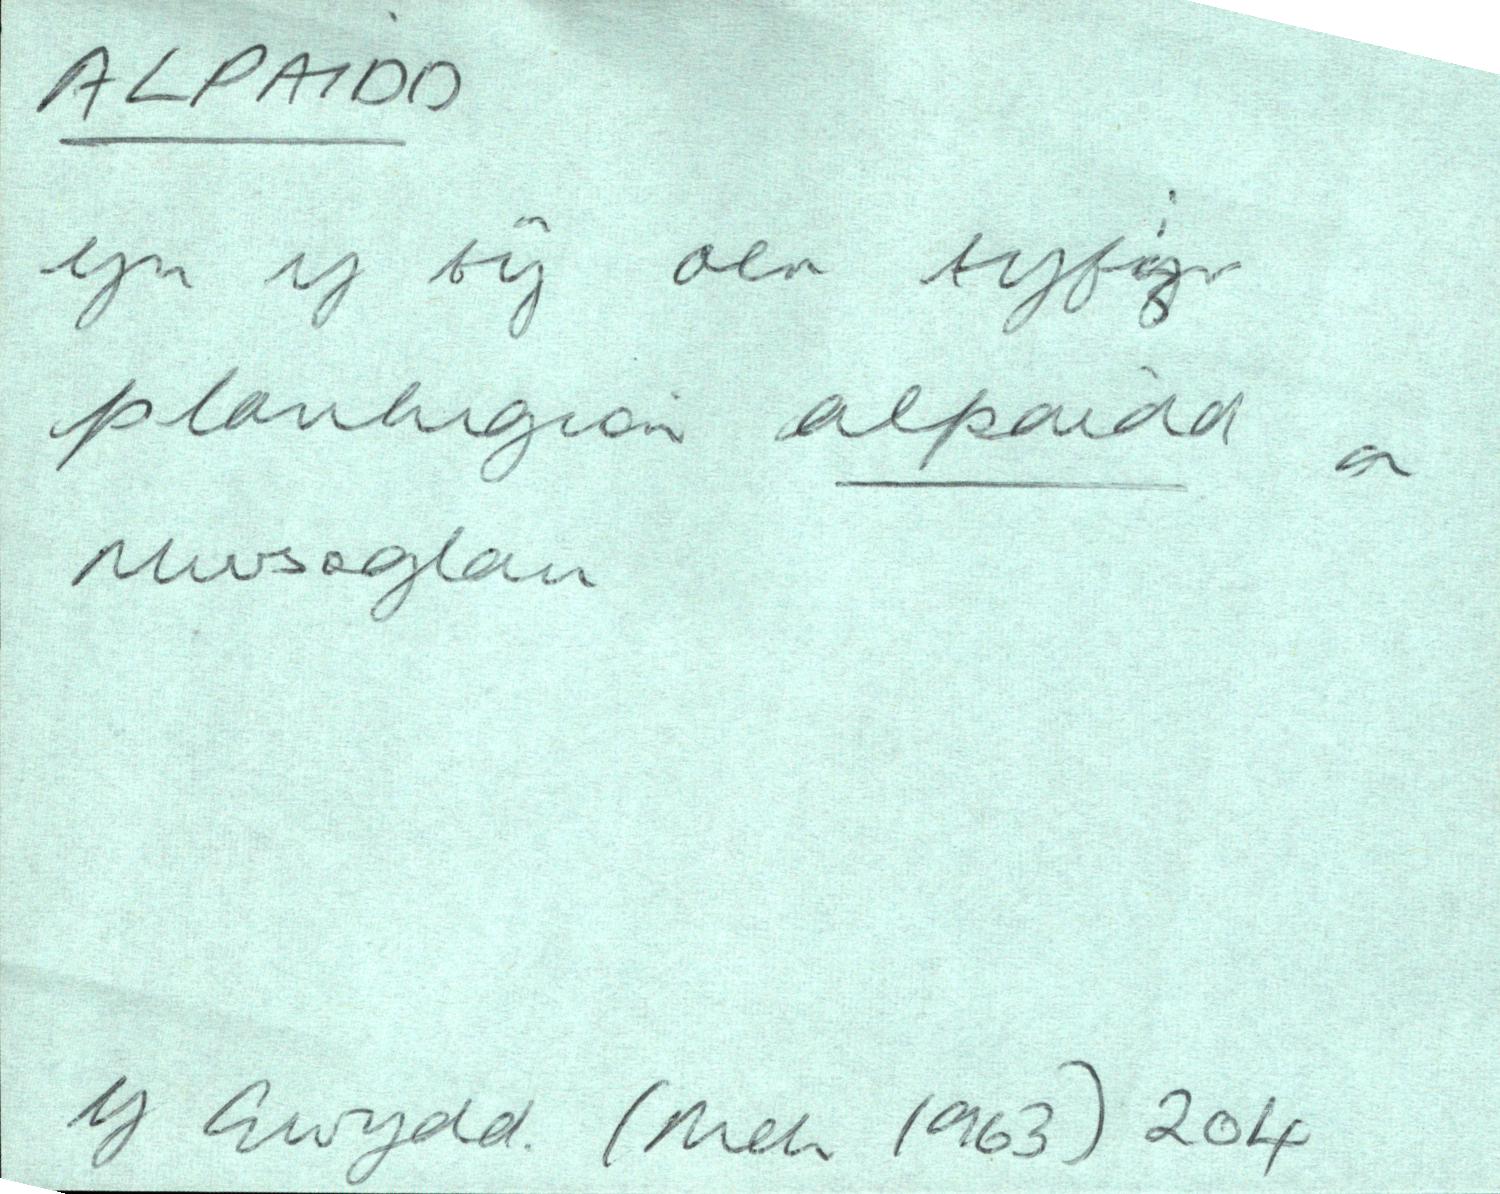 ALPAIDD
yn y tŷ oer tyfir
planhigion alpaidd a
Mwsoglau
Y Gwydd. (Meh 1963) 204